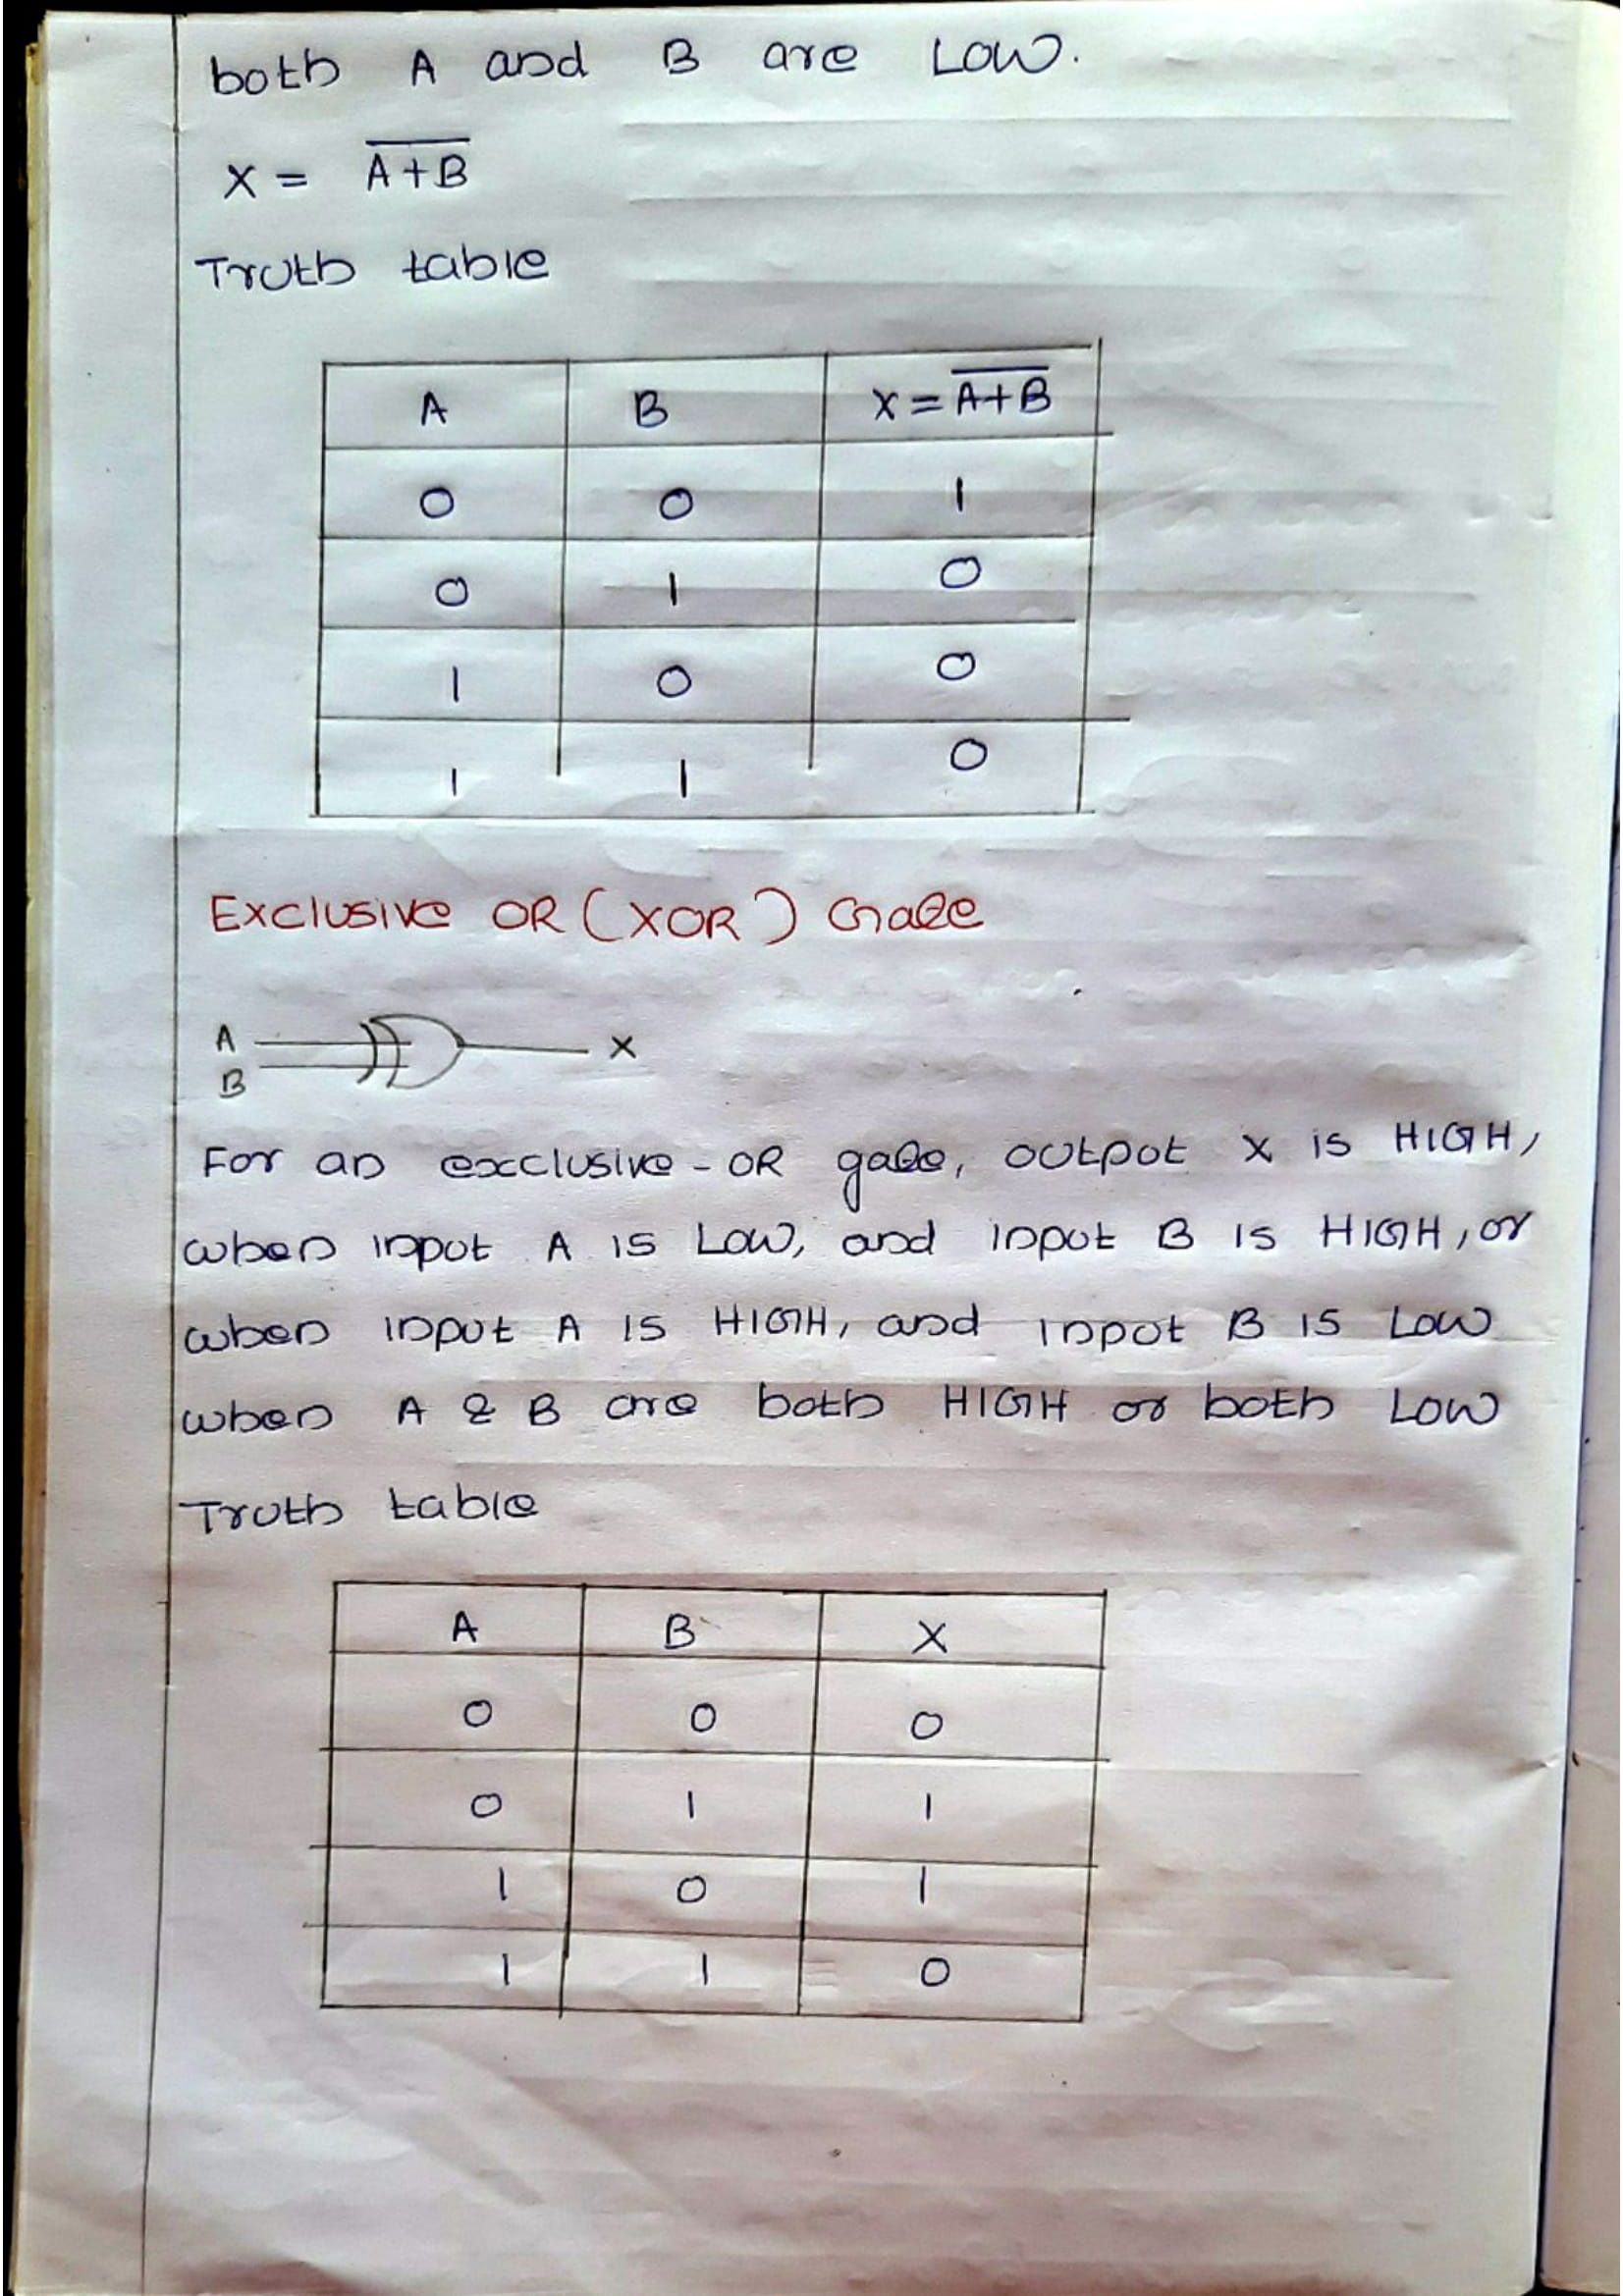 both A and B are LOW.
X = \overline{A+B}
Truth table
A B X = \overline{A+B}
0 0 1
0 1 0
1 0 0
1 1 0
Exclusive OR (XOR) Gate
A
X
B
For an exclusive-OR gate, output X is HIGH,
when input A is LOW, and input B is HIGH, or
when input A is HIGH, and input B is LOW
when A & B are both HIGH or both LOW
Truth table
A B X
0 0 0
0 1 1
1 0 1
1 1 0